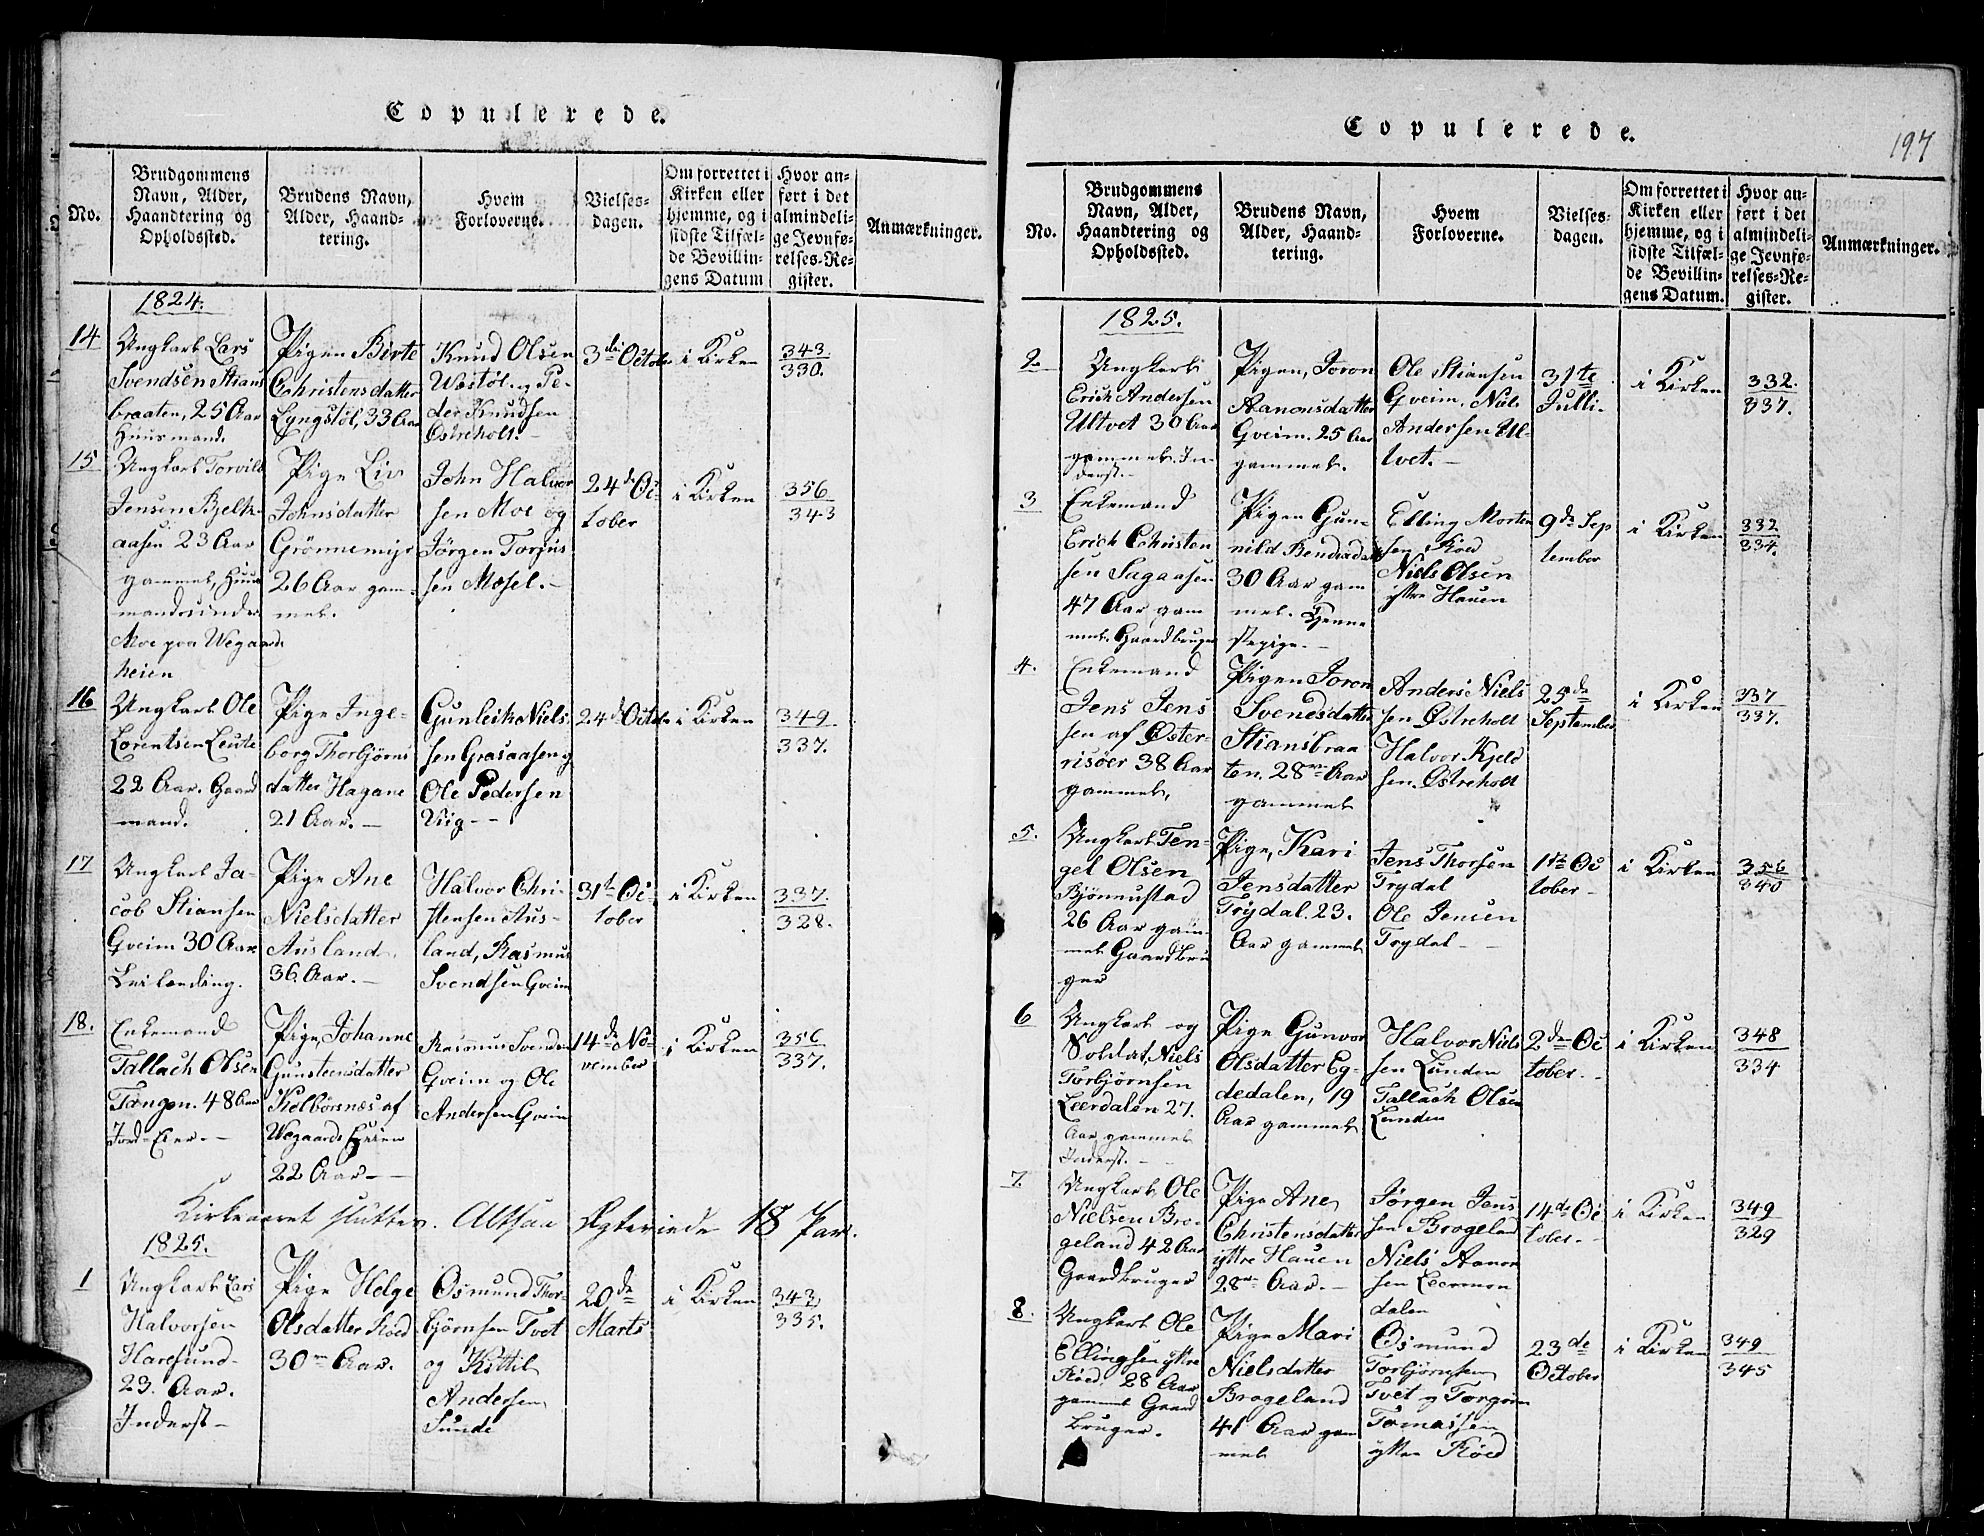 Copulerede.
No.
Brudgommens
Navn, Alder,
Haandtering og
Opholdssted.
Brudens Navn,
Alder, Haand-
tering.
Hvem
Forloverne.
Vielses-
dagen.
Om forrettet i
Kirken eller
hjemme, og i
sidste Tilfæl-
de Bevillin-
gens Datum
Hvor an-
ført i det
almindeli-
ge Jevnfø-
relses-Re-
gister.
Anmærkninger.
1824.
14
Ungkarl Lars
Svendsen Stians
braaten, 25 Aar
Huusmand.
Pigen Birte
Christensdatter
Lyngstøl, 33 Aar
Knud Olsen
Westøl og Pe-
der Knudsen
Østreholt.
3die Octob
i Kirken
343
330.
15
Ungkarl Torvild
Jensen Bjelk-
aasen 23 Aar
gammel, Huus
mand
Moe paa Wegaards
heien
Pige Liv
Johnsdatter
Grönnemyr
26 Aar gam-
mel.
John Halvor
sen Moe og
Jörgen Torjus
sen Mosel.
24de Oc-
tober
i Kirken
356
343
16
Ungkarl Ole
Lorentsen Leute
22 Aar. Gaard
mand.
Pige Inge-
borg Thorbjørns
datter Hagane
21 Aar.
Gunleik Niels
sen Grasaasen og
Ole Pedersen
Viig
24de Octob
i Kirken
349
337.
17
Ungkarl Ja-
cob Stiansen
Gveim 30 Aar
Leilænding.
Pige Ane
Nielsdatter
Ausland
36 Aar.
Halvor Chri-
stensen Aus-
land, Rasmus
Svendsen Gveim
31te Oc-
tober
i Kirken
337.
328.
18.
Enkemand
Tallach Olsen
Tangen. 48 Aar
Jord-Eier.
Pige Johanne
Gunsteensdatter
Kolbörsnes af
Wegaards Heien
22 Aar
Rasmus Svendsen
Gveim og Ole
Andersen Gveim
14de No-
vember
i Kirken
356
337.
Kirkeaaret slutter. Altsaa Ægteviede 18 Par.
1825.
1
Ungkarl Lars
Halvorsen
Haresund
23. Aar.
Inderst
Pige Helge
Olsdatter Röed
30 Aar.
Osmund Thor-
bjørnsen Tvet
og Kittil
Andersen
Sunde
20de
Marts
i Kirken
343
335.
Copulerede.
197
No.
Brudgommens
Navn, Alder,
Haandtering og
Opholdssted.
Brudens Navn,
Alder, Haand-
tering.
Hvem
Forloverne.
Vielses-
dagen.
Om forrettet i
Kirken eller
hjemme, og i
sidste Tilfæl-
de Bevillin-
gens Datum.
Hvor an-
ført i det
almindeli-
ge Jevnfø-
relses-Re-
gister.
Anmærkninger.
1825.
2
Ungkarl
Erich Andersen
Ultvet 30 Aar
gammel. In-
derst.
Pigen, Joron
Aanonsdatter
Gveim. 25 Aar
gammel.
Ole Stiansen
Gveim, Niels
Andersen Ul-
tvet.
31te
Julli
i Kirken
332.
337.
3
Enkemand
Erich Christen
sen Sagaasen
47 Aar gam
mel. Gaardbruger
Pigen Gun-
nild Bendixdat
30 Aar gam
mel. Tjene
stepige.
Elling Morten
sen Röed
Niels Olsen
yttre Hauen
9de Sep
tember
i Kirken
332
334.
4.
Enkemand
Jens Jens
sen af Øster-
risøer 38 Aar
gammel,
Pigen Joron
Svendsdatter
Stiansbraa
ten, 28 Aar
gammel
Anders Niels
sen Østreholt
Halvor Kjeld
sen Østreholt
25de
September
i Kirken
337
337.
5.
Ungkarl Ten-
gel Olsen
Bjönnustad
26 Aar gam-
mel Gaardbru
ger
Pige, Kari
Jensdatter
Trydal. 23.
Aar gammel
Jens Thorsen
Trydal
Ole Jensen
Trydal
1te Oc
tober
i Kirken
356
340
6
Ungkarl og
Soldat, Niels
Torbjörnsen
Leerdalen 27.
Aar gammel
Inderst.
Pige Gunvor
Olsdatter Eg-
dedalen, 19
Aar gammel
Halvor Niels
sen Lunden
Tallach Olsen
Lunden
2den Oc
tober
i Kirken
348
334
7.
Ungkarl Ole
Nielsen Bro-
geland 42 Aar
Gaardbruger
Pige Ane
Christensdatter
yttre Hauen
28 Aar.
Jørgen Jens
sen Brogeland
Niels Aanon
sen Leermon
dalen
14de Oc
tober
i Kirken
349
329
8.
Ungkarl Ole
Ellingsen yttre
Röed, 28 Aar
gammel Gaard
bruger.
Pige Mari
Nielsdatter
Brogeland
41 Aar gam
mel
Osmund
Torbjörnsen
Tvet og Torgrim
Tomassen
yttre Röed
23de
October
i Kirken
349
345